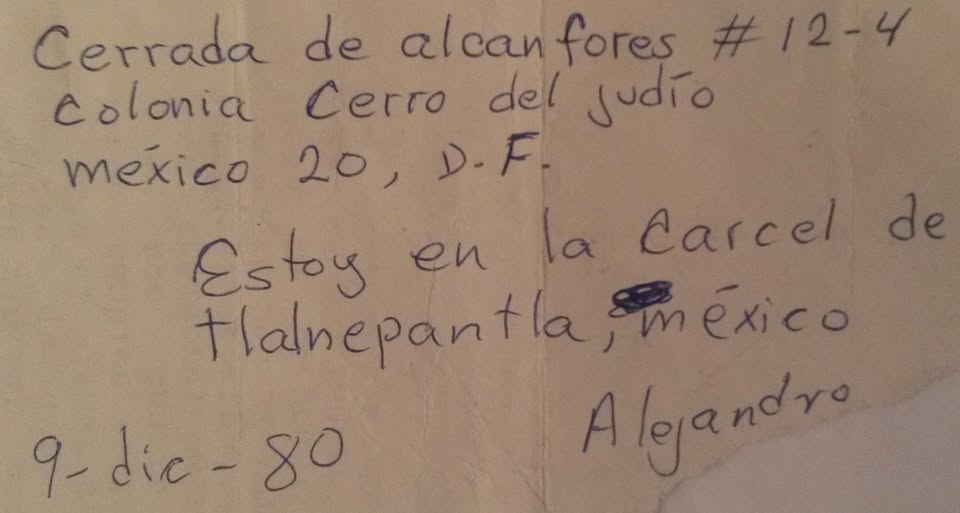 Cerrada de alcanfores # 12-4
Colonia Cerro del judío
méxico 20, D.F.
Estoy en la Carcel de
tlalnepantla, méxico
Alejandro
9-dic-80